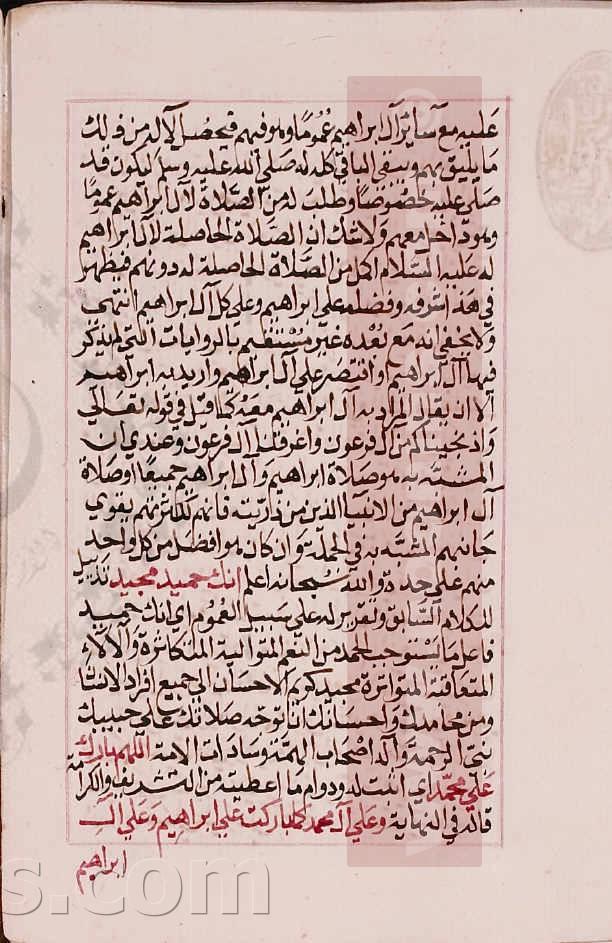 عليه مع سائر آل ابراهيم عموما وهو فيهم فيحصل لآله من ذلك
ما يليق بهم ويبقى الباقي كله له صلى الله عليه وسلم ليكون قد
صلى عليه خصوصا وطلب له من الصلاة لآل ابراهيم عموما
وهو داخل معهم ولا شك ان الصلاة الحاصلة لآل ابراهيم
له عليه السلام اكمل من الصلاة الحاصلة له دونهم فيظهر
في هذا شرفه وفضله على ابراهيم وعلى كل آل ابراهيم انتهى
ولا يخفى انه مع بعده غير مستقيم بالروايات التي لم يذكر
فيها آل ابراهيم واقتصر على آل ابراهيم واريد به ابراهيم
الا ان يقال المراد به آل ابراهيم معه كما قيل في قوله تعالى
واذ نجيناكم من آل فرعون واغرقنا آل فرعون وعندي ان
المشبه به هو صلاة ابراهيم وآل ابراهيم جميعا او صلاة
آل ابراهيم من الانبيا الذين من ذريته فانهم لكثرتهم يقوي
جانبهم المشبه به في الجملة وان كان هو افضل من كل واحد
منهم على حدة والله سبحانه اعلم انك حميد مجيد تذييل
للكلام السابق وتقرير له على سبيل العموم اي انك حميد
فاعل ما تستوجب الحمد من النعم المتوالية المتكاثرة والآلاء
المتعاقبة المتواترة مجيد كريم الاحسان الى جميع افراد الانسان
ومن محامدك واحسانك ان توجه صلاتك على حبيبك
نبي الرحمة وآله اصحاب الهمة وسادات الامة اللهم بارك
على محمد اي اثبت له ودوام ما اعطيته من التشريف والكرامة
قاله في النهاية وعلى آل محمد كما باركت على ابراهيم وعلى آل
ابراهيم
s.com